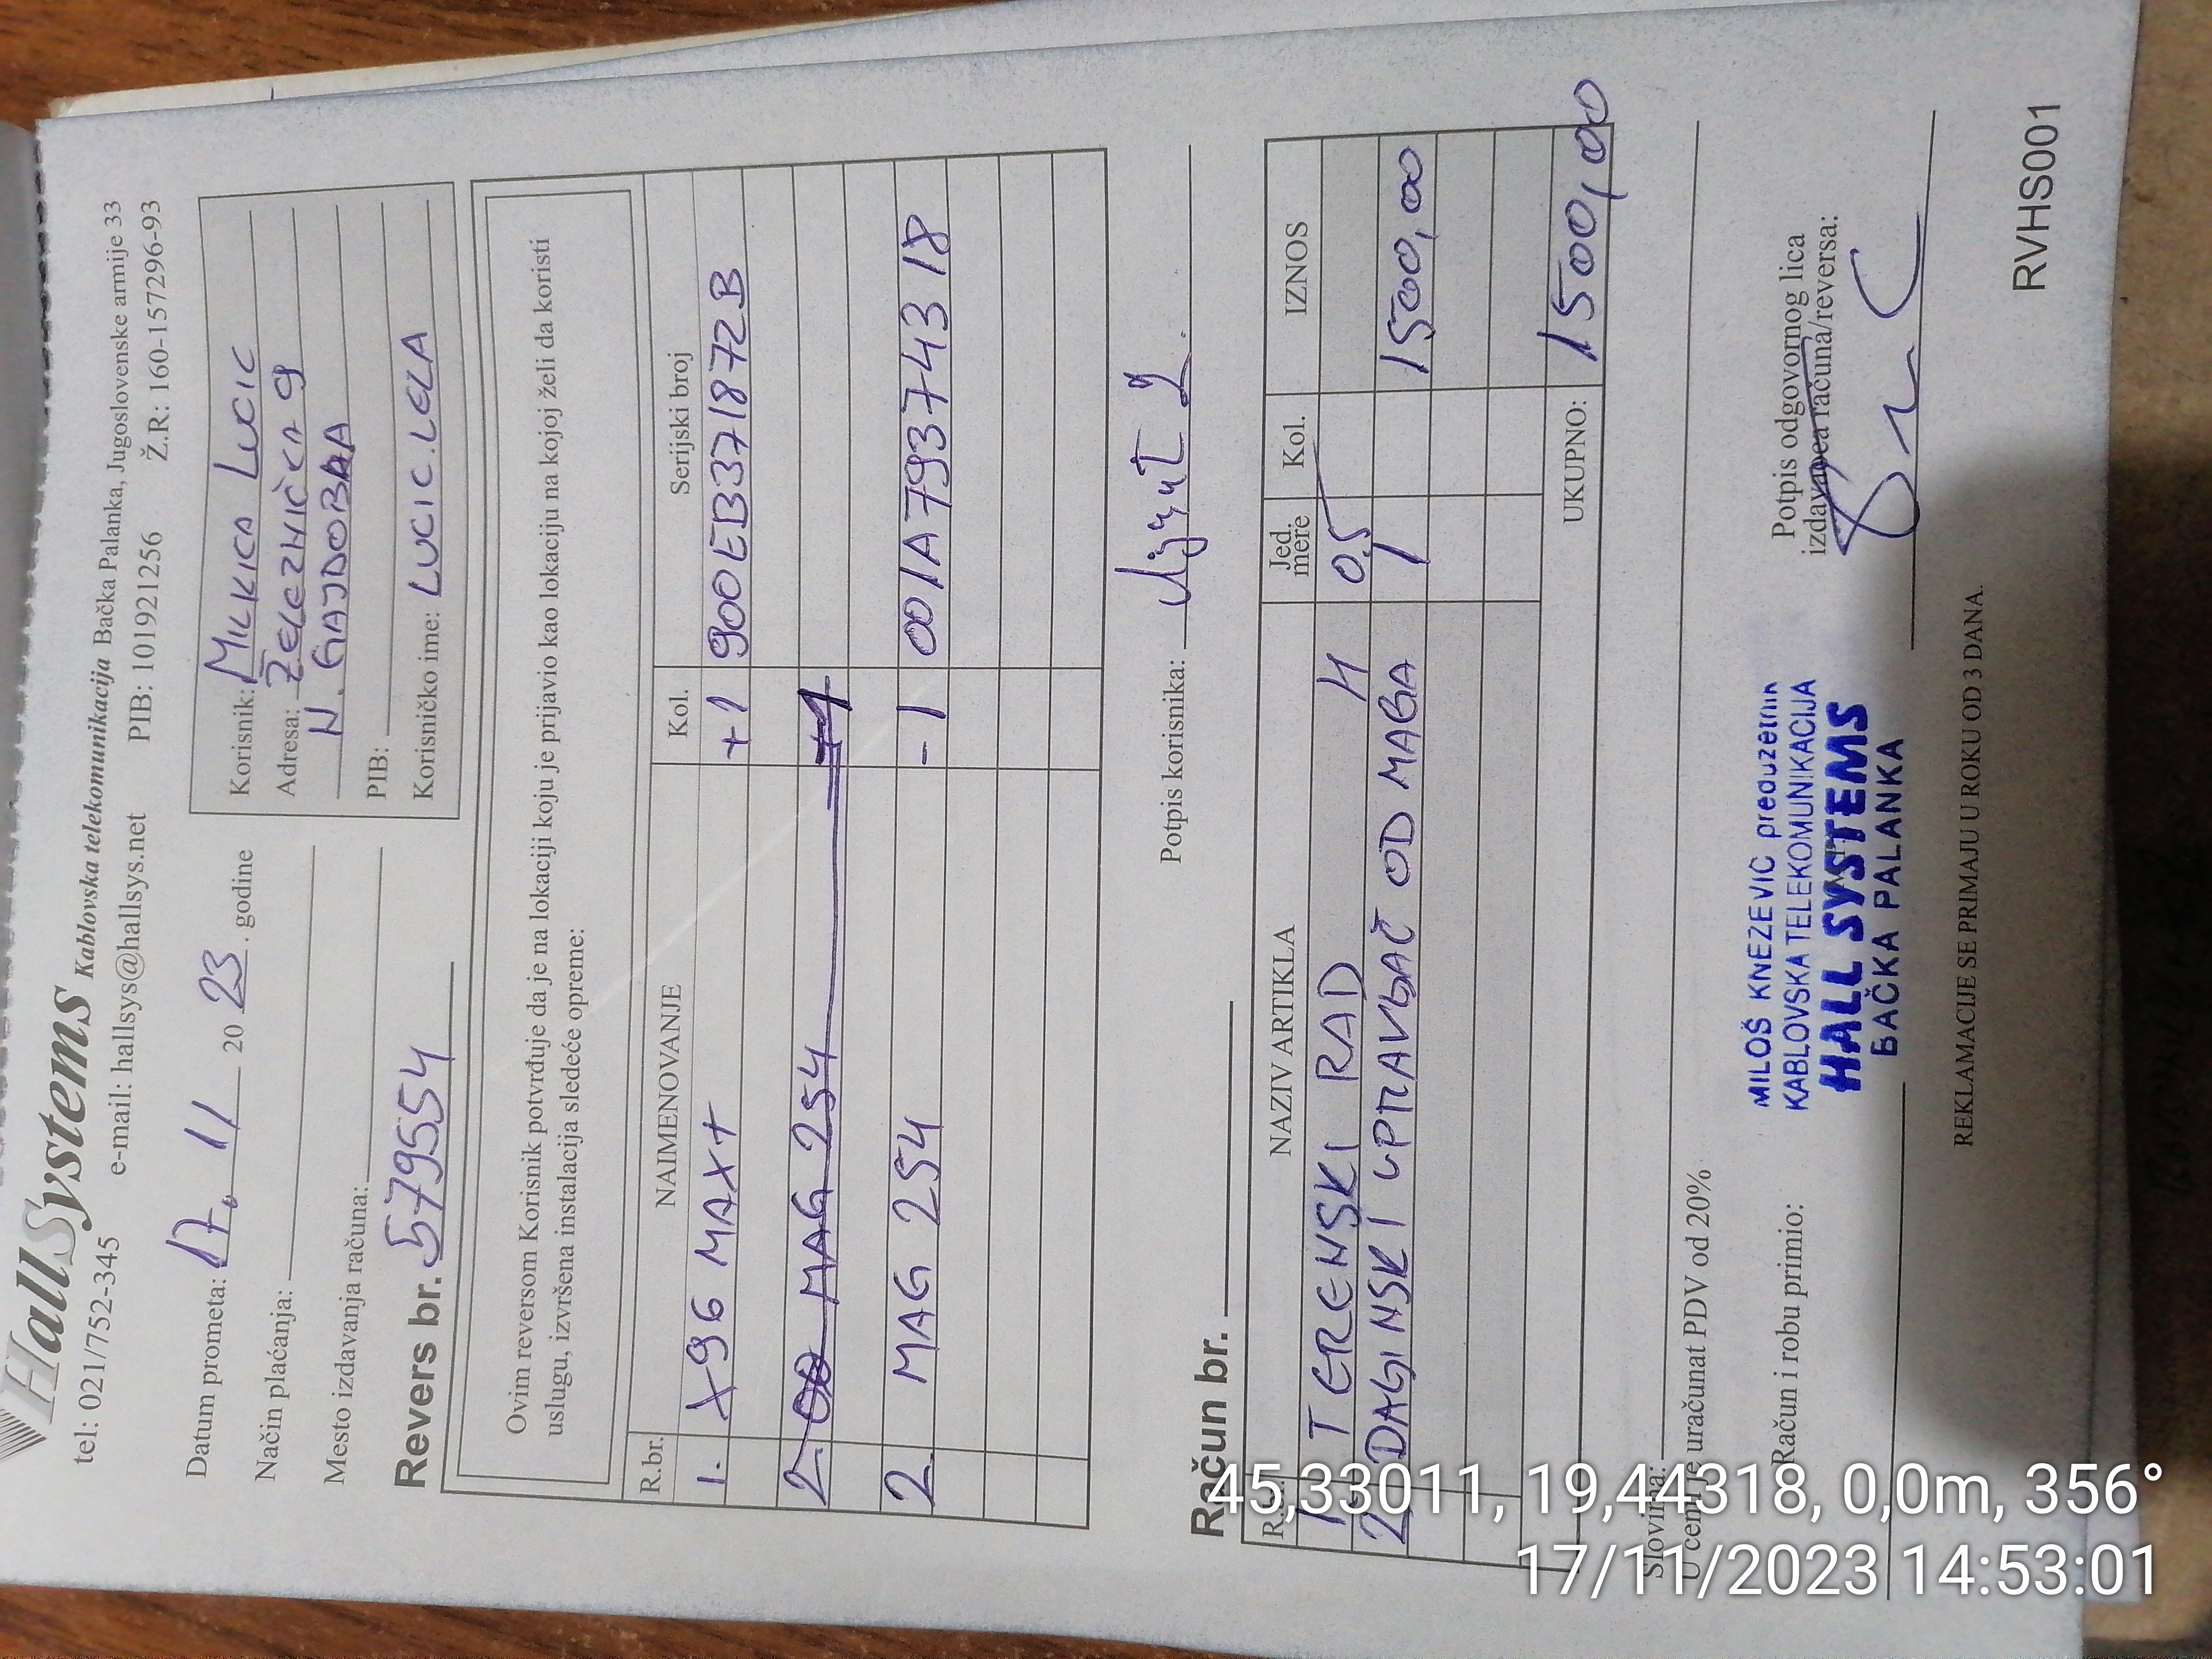 HallSystems Kablovska telekomunikacija Bačka Palanka, Jugoslovenske armije 33
tel: 021/752-345 e-mail: hallsys@hallsys.net PIB: 101921256 Ž.R: 160-157296-93
Datum prometa: 17. 11 20 23. godine
Način plaćanja:
Mesto izdavanja računa:
Revers br. 579554
Korisnik: MILKICA LUCIC
Adresa: ŽELEZNIČKA 9
N. GAJDOBRA
PIB:
Korisničko ime: LUCIC.LELA
Ovim reversom Korisnik potvrđuje da je na lokaciji koju je prijavio kao lokaciju na kojoj želi da koristi
uslugu, izvršena instalacija sledeće opreme:
R.br. NAIMENOVANJE Kol. Serijski broj
1. X96 MAX+ +1 900EB371872B
2. MAG 254 +1
2. MAG 254 -1 001A79374318
Potpis korisnika:
Račun br.
R.br. NAZIV ARTIKLA Jed. mere Kol. IZNOS
1 TERENSKI RAD H 0.5
2 DAGINSKI UPRAVLJAČ OD MAGA 1 1500,00
UKUPNO: 1500,00
Slovima:
U cenu je uračunat PDV od 20%
Račun i robu primio:
MILOŠ KNEZEVIC preduzetnik
KABLOVSKA TELEKOMUNIKACIJA
HALL SYSTEMS
BAČKA PALANKA
Potpis odgovornog lica
izdavaoca računa/reversa:
REKLAMACIJE SE PRIMAJU U ROKU OD 3 DANA.
RVHS001
45,33011, 19,44318, 0,0m, 356°
17/11/2023 14:53:01